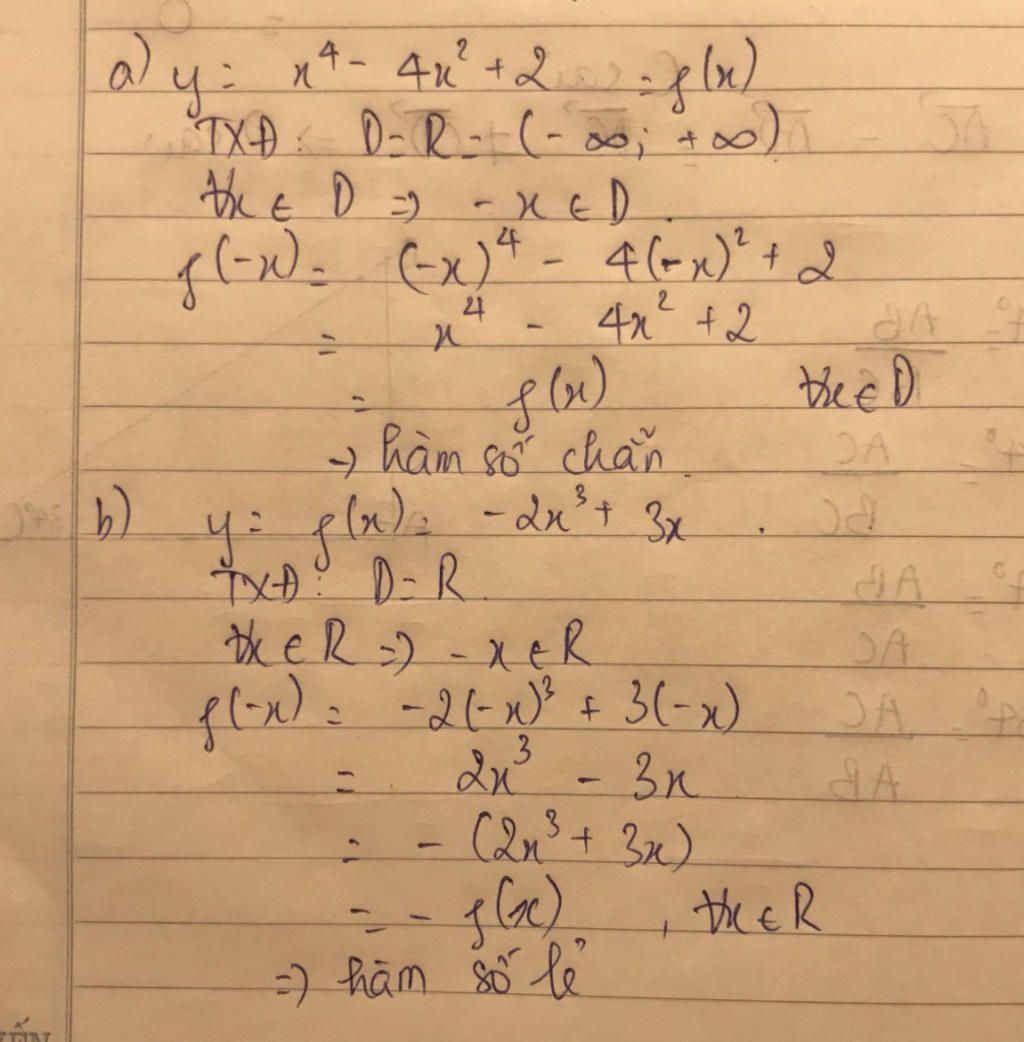 a) y = x⁴ - 4x² + 2 = f(x)
TXĐ: D = R = (-∞; +∞)
∀x ∈ D => -x ∈ D.
f(-x) = (-x)⁴ - 4(-x)² + 2
= x⁴ - 4x² + 2
= f(x) ∀x ∈ D
-> hàm số chẵn.
b) y = f(x) = -2x³ + 3x.
TXĐ: D = R.
∀x ∈ R => -x ∈ R
f(-x) = -2(-x)³ + 3(-x)
= 2x³ - 3x
= -(2x³ + 3x)
= -f(x), ∀x ∈ R
=> hàm số lẻ